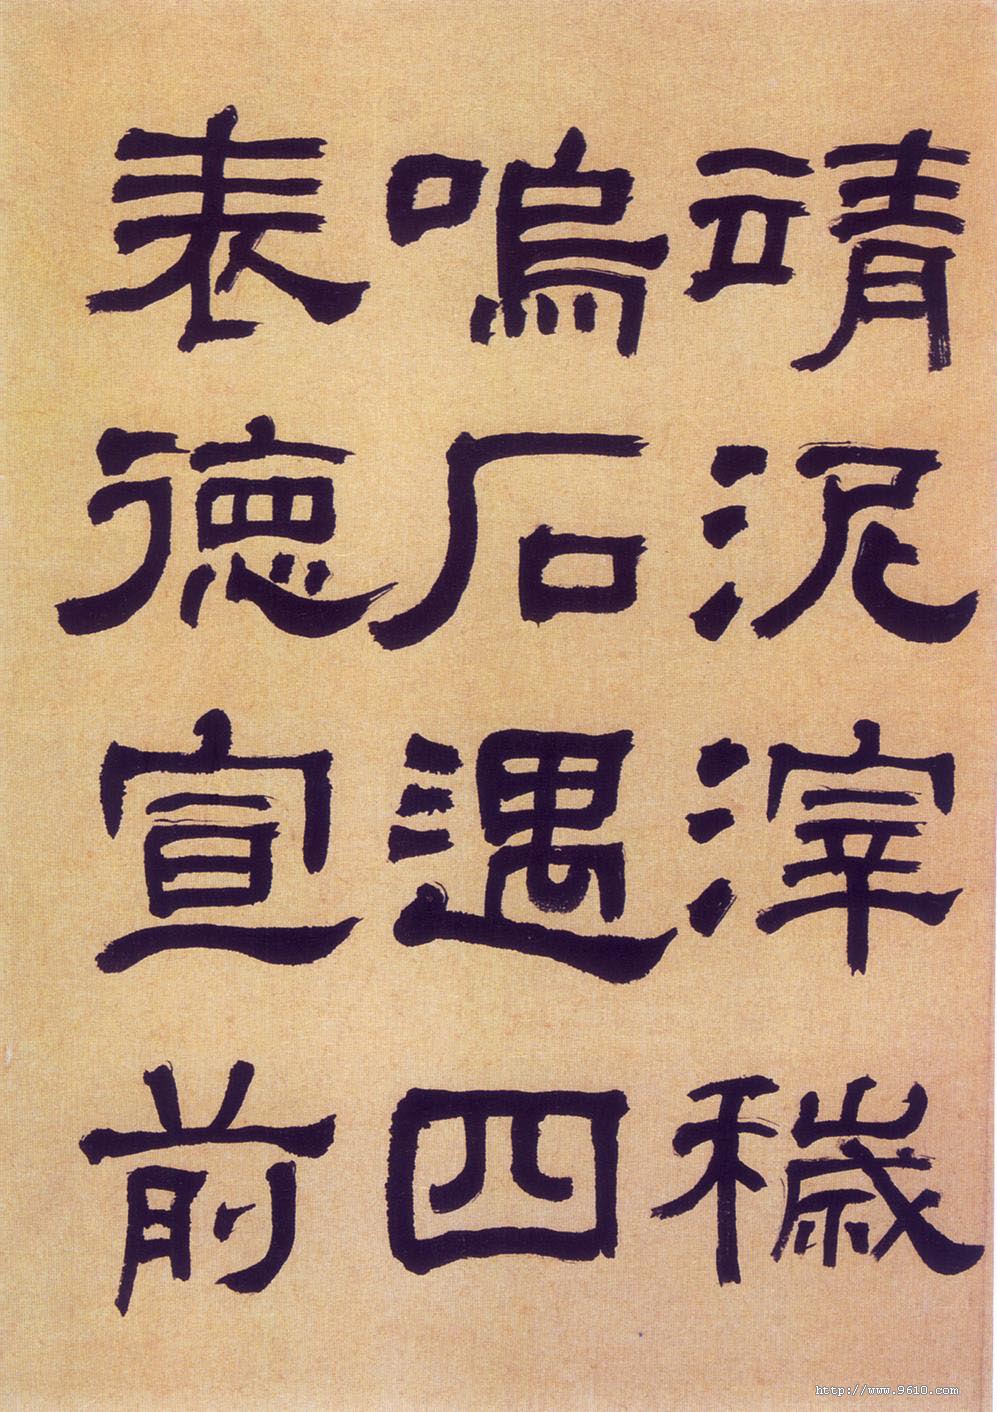 靖泥滓穢
嗚石遇四
表德宣前
http://www.9610.com